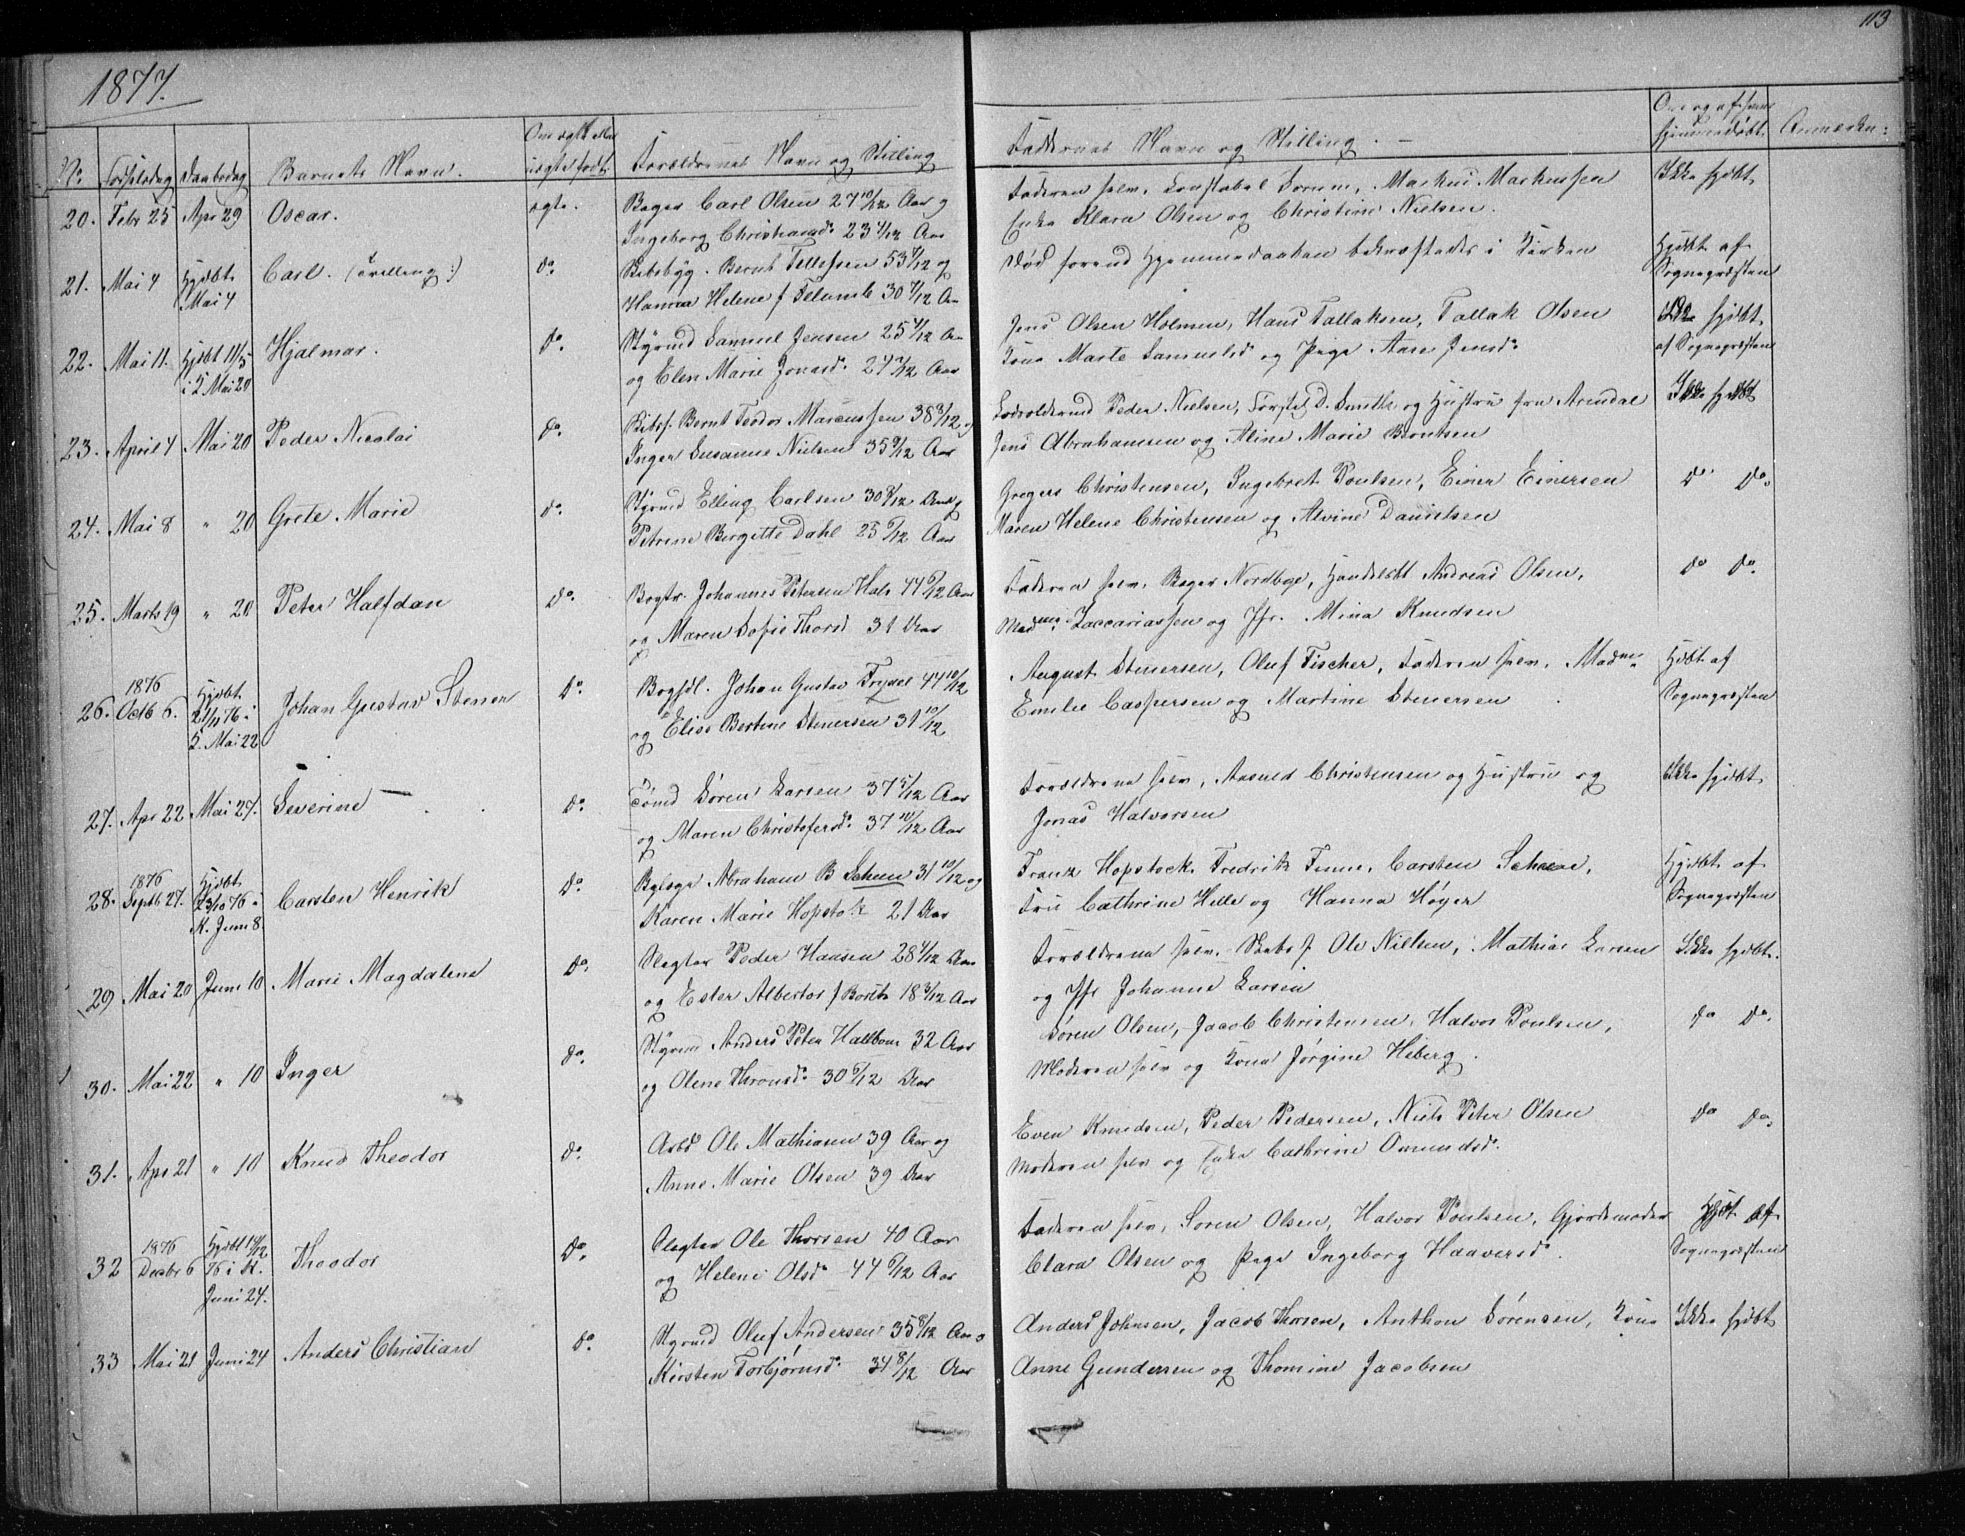 113
1877.
No. Fødselsdag Daabsdag Barnets Navn. Om ægte eller uægte født. Forældrenes Navn og Stilling Faddernes Navn og Stilling. Om og af hvem hjemmedøbt. Anmærkn:
20. Febr 25 Apr 29 Oscar. ægte. Bager Carl Olsen 27 10/12 Aar og Faderen selv, Konstabel Sorum, Markus Markussen Ikke hjdbt
Ingeborg Christiansd. 23 4/12 Aar Enke Klara Olsen og Christine Nielsen.
21. Mai 4 Hjdbt Mai 4 Carl. (Tvilling:) Do. Bernt Tellefsen 53 7/12 og Død forend Hjemmedaaben bekræftedes i Kirken Hjdbt af
Hanna Helene f Telumb 30 7/12 Aar Sognepræsten
22. Mai 11. Hjdbt 11/5 i K Mai 20 Hjalmar. Do. Styrmd Samuel Jensen 25 4/12 Aar Jens Olsen Holmen, Hans Tallaksen, Tallak Olsen hjdbt
og Elen Marie Jonasd. 24 Aar Kona Marte Samuelsd og Pige Aase Jensd. af Sognepræsten
23. April 4 Mai 20 Peder Nicolai Do. Bernt Teodor Marcussen 38 3/12 og Peder Nielsen, D. Smith og Hustru fra Arendal Ikke hjdbt
Inger Susanne Nielsen 35 9/12 Aar Jens Abrahamsen og Aline Marie Berntsen
24. Mai 8 " 20 Grete Marie Do. Styrmd Elling Carlsen 30 Aar og Gregers Christensen, Ingebret Poulsen, Einer Einersen Do Do.
Petrine Birgitte Dahl 25 6/12 Aar Maren Helene Christensen og Alvine Danielsen
25. Marts 19 " 20 Peter Halfdan Do. Johannes Petersen Hals 44 6/12 Aar Faderen selv, Bager Nordbøe, Andreas Olsen, Do Do.
og Maren Sofie Thorsd 31 Aar Madme. Zaccariassen og Jfr. Mina Knudsen
26. 1876 Octb 6. Hjdbt 21/11 76 i K. Mai 22 Johan Gustav Stener Do. Johan Gustav Trysel 44 10/12 August Stenersen, Oluf Fischer, Faderen selv, Madme. Hdbt af
og Elise Bertine Stenersen 31 10/12 Emilie Caspersen og Martine Stenersen Sognepræsten
27. Apr 22 Mai 27. Severine Do. Tømd Søren Larsen 37 5/12 Aar Forældrene selv, Christensen og Hustru og Ikke hjdbt
og Maren Christofersd. 37 10/12 Aar Jonas Halvorsen
28. 1876 Septb 27. Hjdbt 23/10 76 i K. Juni 8 Carsten Henrik Do. Abraham B Scheen 31 10/12 og Franz Hopstock, Fredrik Finne, Carsten Scheen, Hjdbt af
Karen Marie Hopstok 21 Aar Fru Cathrine Helle og Hanna Høyer Sognepræsten
29 Mai 20 Juni 10 Marie Magdalene Do. Slagter Peder Hansen 28 4/12 Aar Forældrene selv, Ole Nielsen, Mathias Larsen Ikke hjdbt.
og Ester Albertor f Boritz 18 3/12 Aar og Jfr Johanne Larsen
30. Mai 22 " 10 Inger Do. Styrmd Anders Peter Hallbom 32 Aar Søren Olsen, Jacob Christensen, Halvor Poulsen, Do Do.
og Olene Thronsd. 30 6/12 Aar Moderen selv og Kona Jørgine Heberg.
31. Apr 21 " 10 Knud Theodor Do. Arbd Ole Mathiasen 39 Aar og Even Knudsen, Peder Pedersen, Niels Peter Olsen Do Do.
Anne Marie Olsen 39 Aar Moderen selv og Enke Cathrine Omundsd.
32 1876 Decbr 6 Hjdbt 14/12 76 i K. Juni 24. Theodor Do. Slagter Ole Thorsen 40 Aar Faderen selv, Soren Olsen, Halvor Poulsen, Gjordemoder Hjdbt af
og Helene Olsd. 44 6/12 Aar Clara Olsen og Pige Ingeborg Haaversd. Sognepræsten
33 Mai 21 Juni 24 Anders Christian Do. Styrmd Oluf Andersen 35 8/12 Aar o Anders Johnsen, Jacob Thorsen, Anthon Sørensen, Kona Ikke hjdbt
Kirsten Torbjørnsd. 34 8/12 Aar Anne Gundersen og Thomine Jacobsen